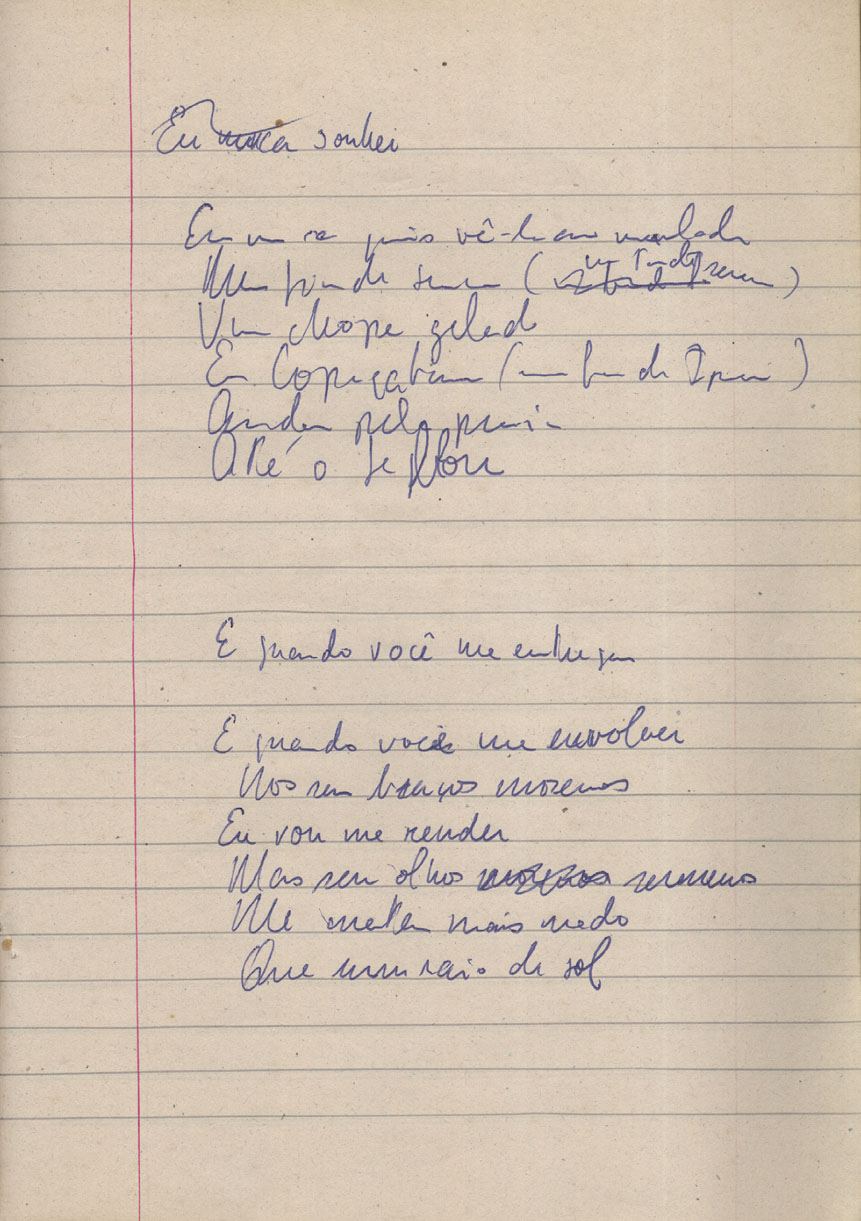 Eu nunca sonhei
Eu quis vê-la ao meu lado
Num fim de semana (
Um chope gelado
Em Copacabana ( de Ipan )
Andar pela praia
Até o Leblon
E quando você me entregar
E quando você me envolver
Nos seus braços morenos
Eu vou me render
Mas seus olhos morenos serenos
Me metem mais medo
Que um raio de sol